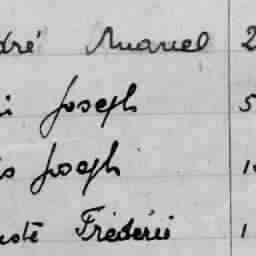 dré Manuel 2
i Joseph 5
s Joseph 1
usté Frédéric 1